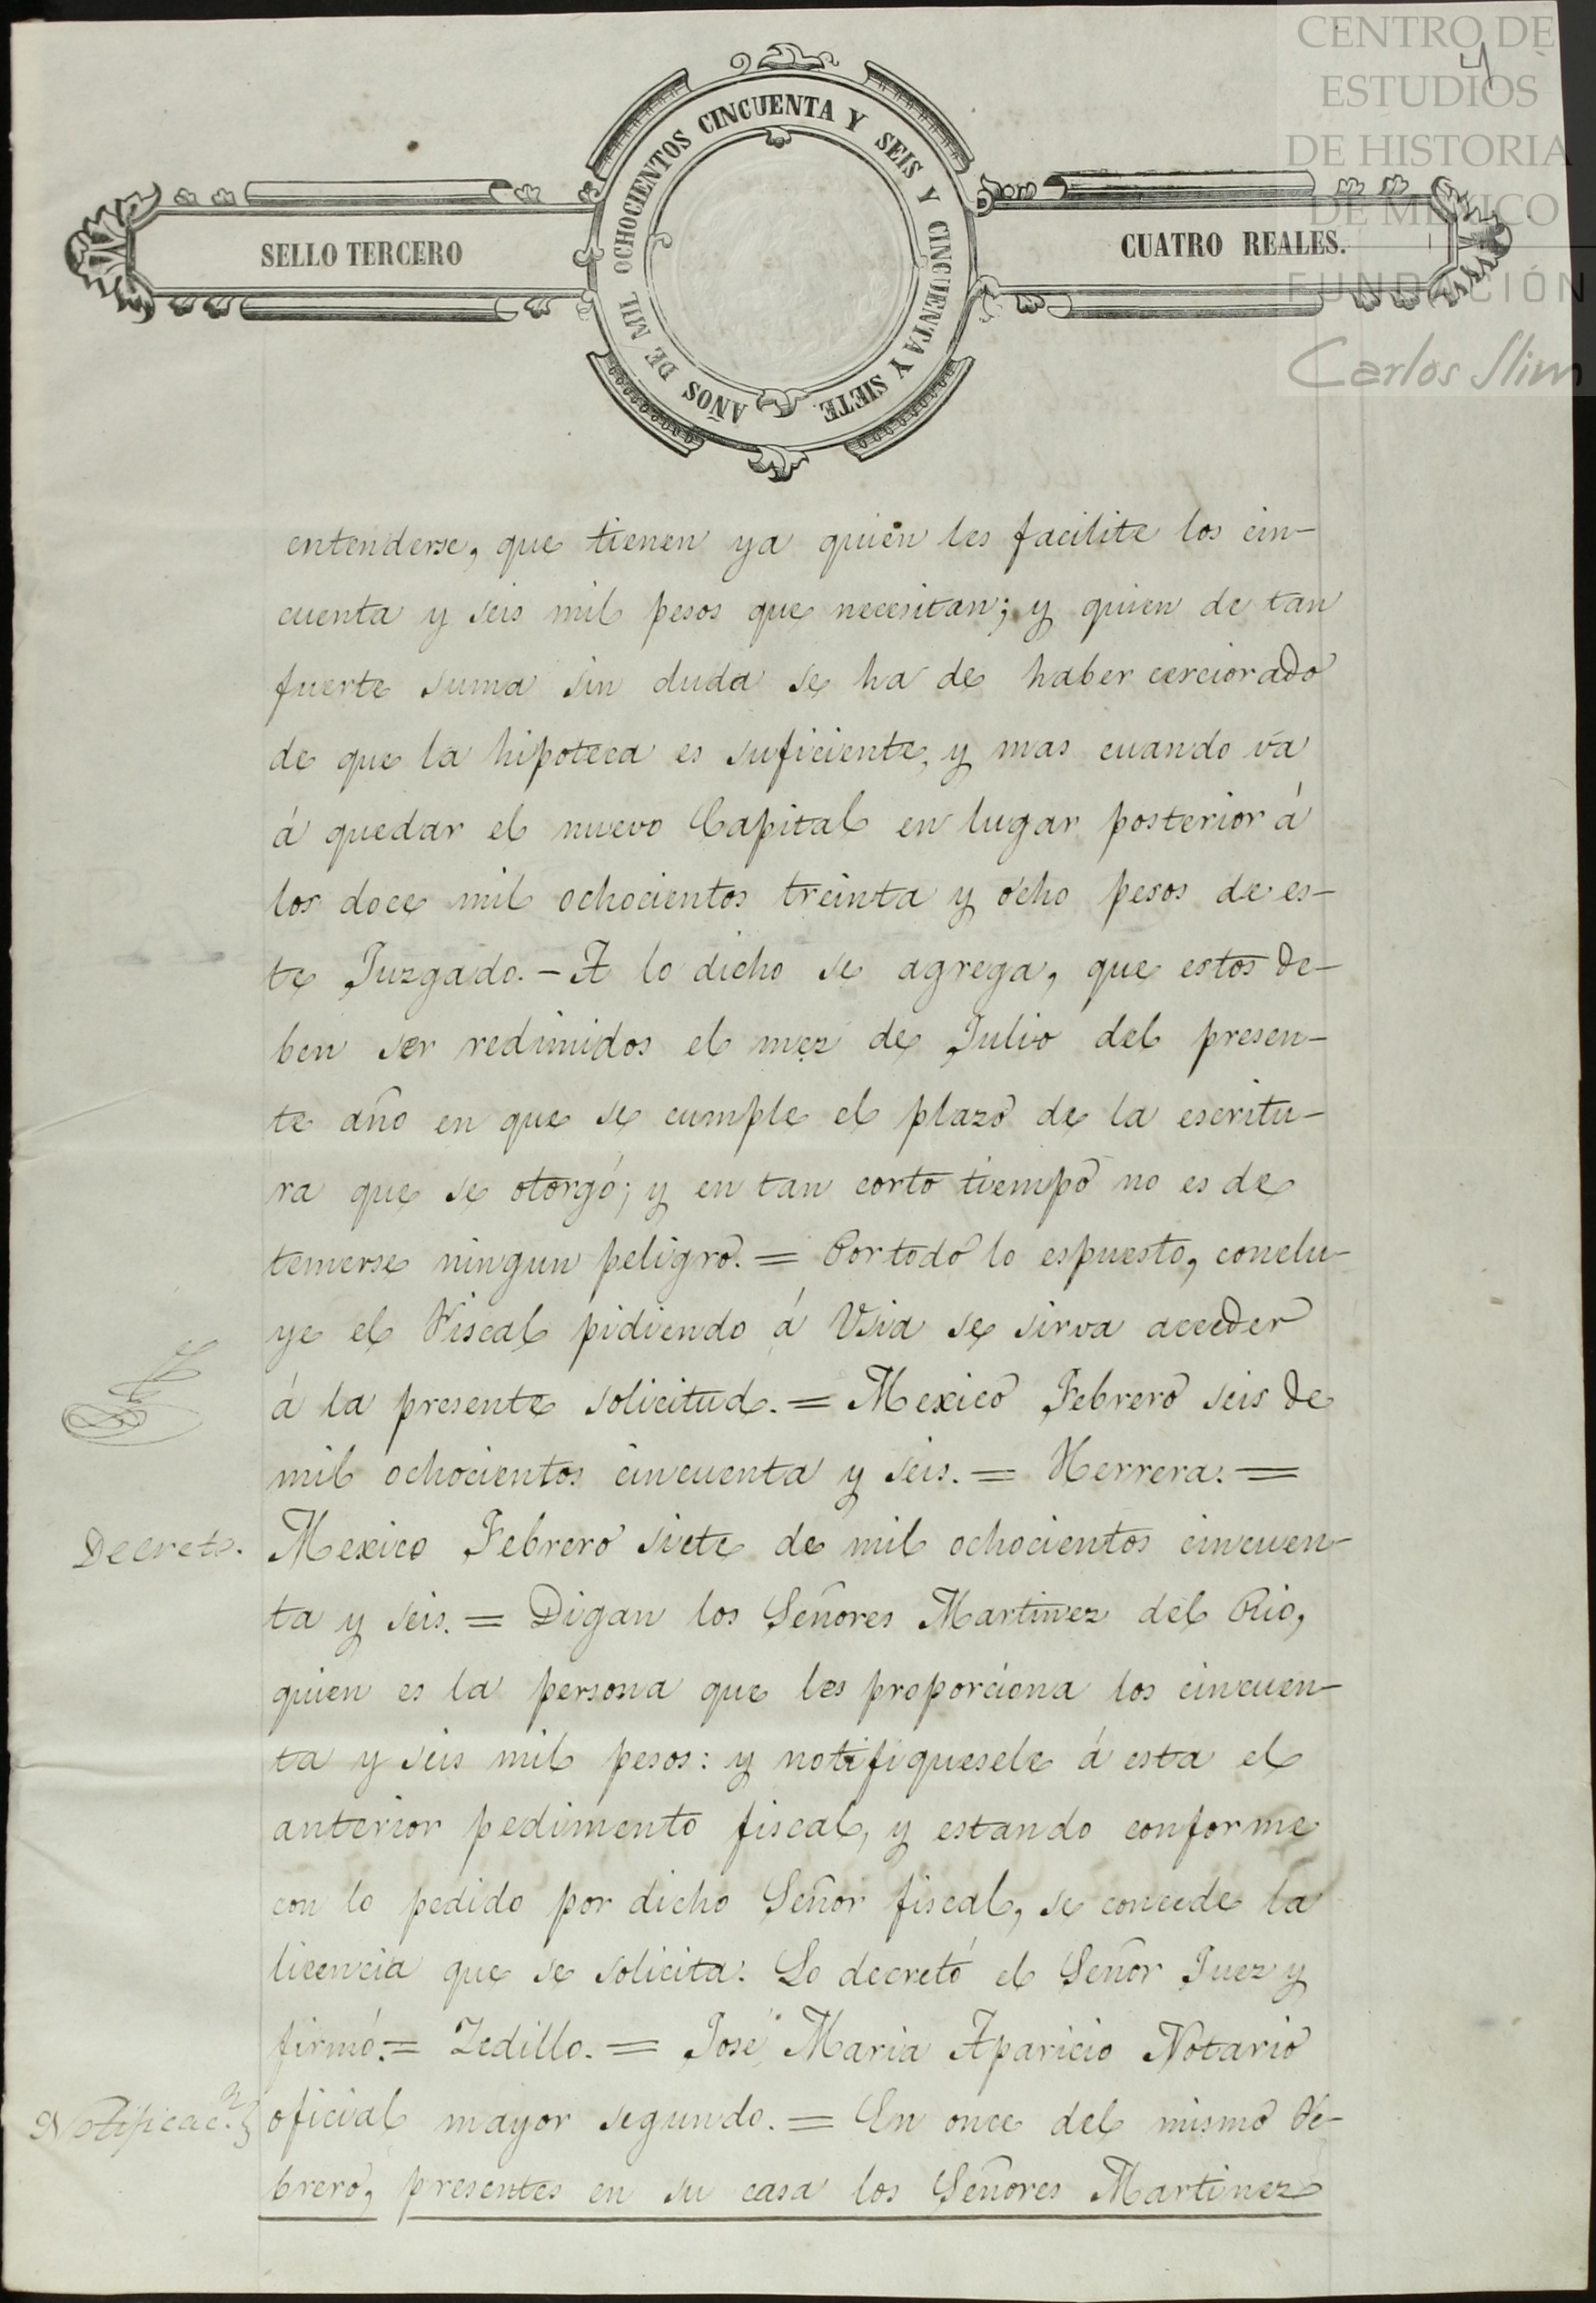 CENTRO DE
ESTUDIOS
DE HISTORIA
DE MÉXICO
FUNDACIÓN
Carlos Slim
4
SELLO TERCERO
AÑOS DE MIL OCHOCIENTOS CINCUENTA Y SEIS Y CINCUENTA Y SIETE.
CUATRO REALES.
entenderse, que tienen ya quien les facilite los cin-
cuenta y seis mil pesos que necesitan; y quien de tan
fuerte suma sin duda se ha de haber cerciorado
de que la hipoteca es suficiente, y mas cuando va
á quedar el nuevo Capital en lugar posterior á
los doce mil ochocientos treinta y ocho pesos de es-
te Juzgado. - A lo dicho se agrega, que estos de-
ben ser redimidos el mez de Julio del presen-
te año en que se cumple el plazo de la escritu-
ra que se otorgó; y en tan corto tiempo no es de
temerse ningun peligro. = Por todo lo espuesto, conclu-
ye el Fiscal pidiendo á Usia se sirva acceder
á la presente solicitud. = Mexico Febrero seis de
mil ochocientos cincuenta y seis. = Herrera. =
Decreto. Mexico Febrero siete de mil ochocientos cincuen-
ta y seis. = Digan los Señores Martinez del Rio,
quien es la persona que les proporciona los cincuen-
ta y seis mil pesos: y notifiquesele á esta el
anterior pedimento fiscal, y estando conforme
con lo pedido por dicho Señor fiscal, se concede la
licencia que se solicita. Lo decretó el Señor Juez y
firmó. = Zedillo. = José Maria Aparicio Notario
Notificac.n oficial mayor segundo. = En once del mismo Fe-
brero, presentes en su casa los Señores Martinez